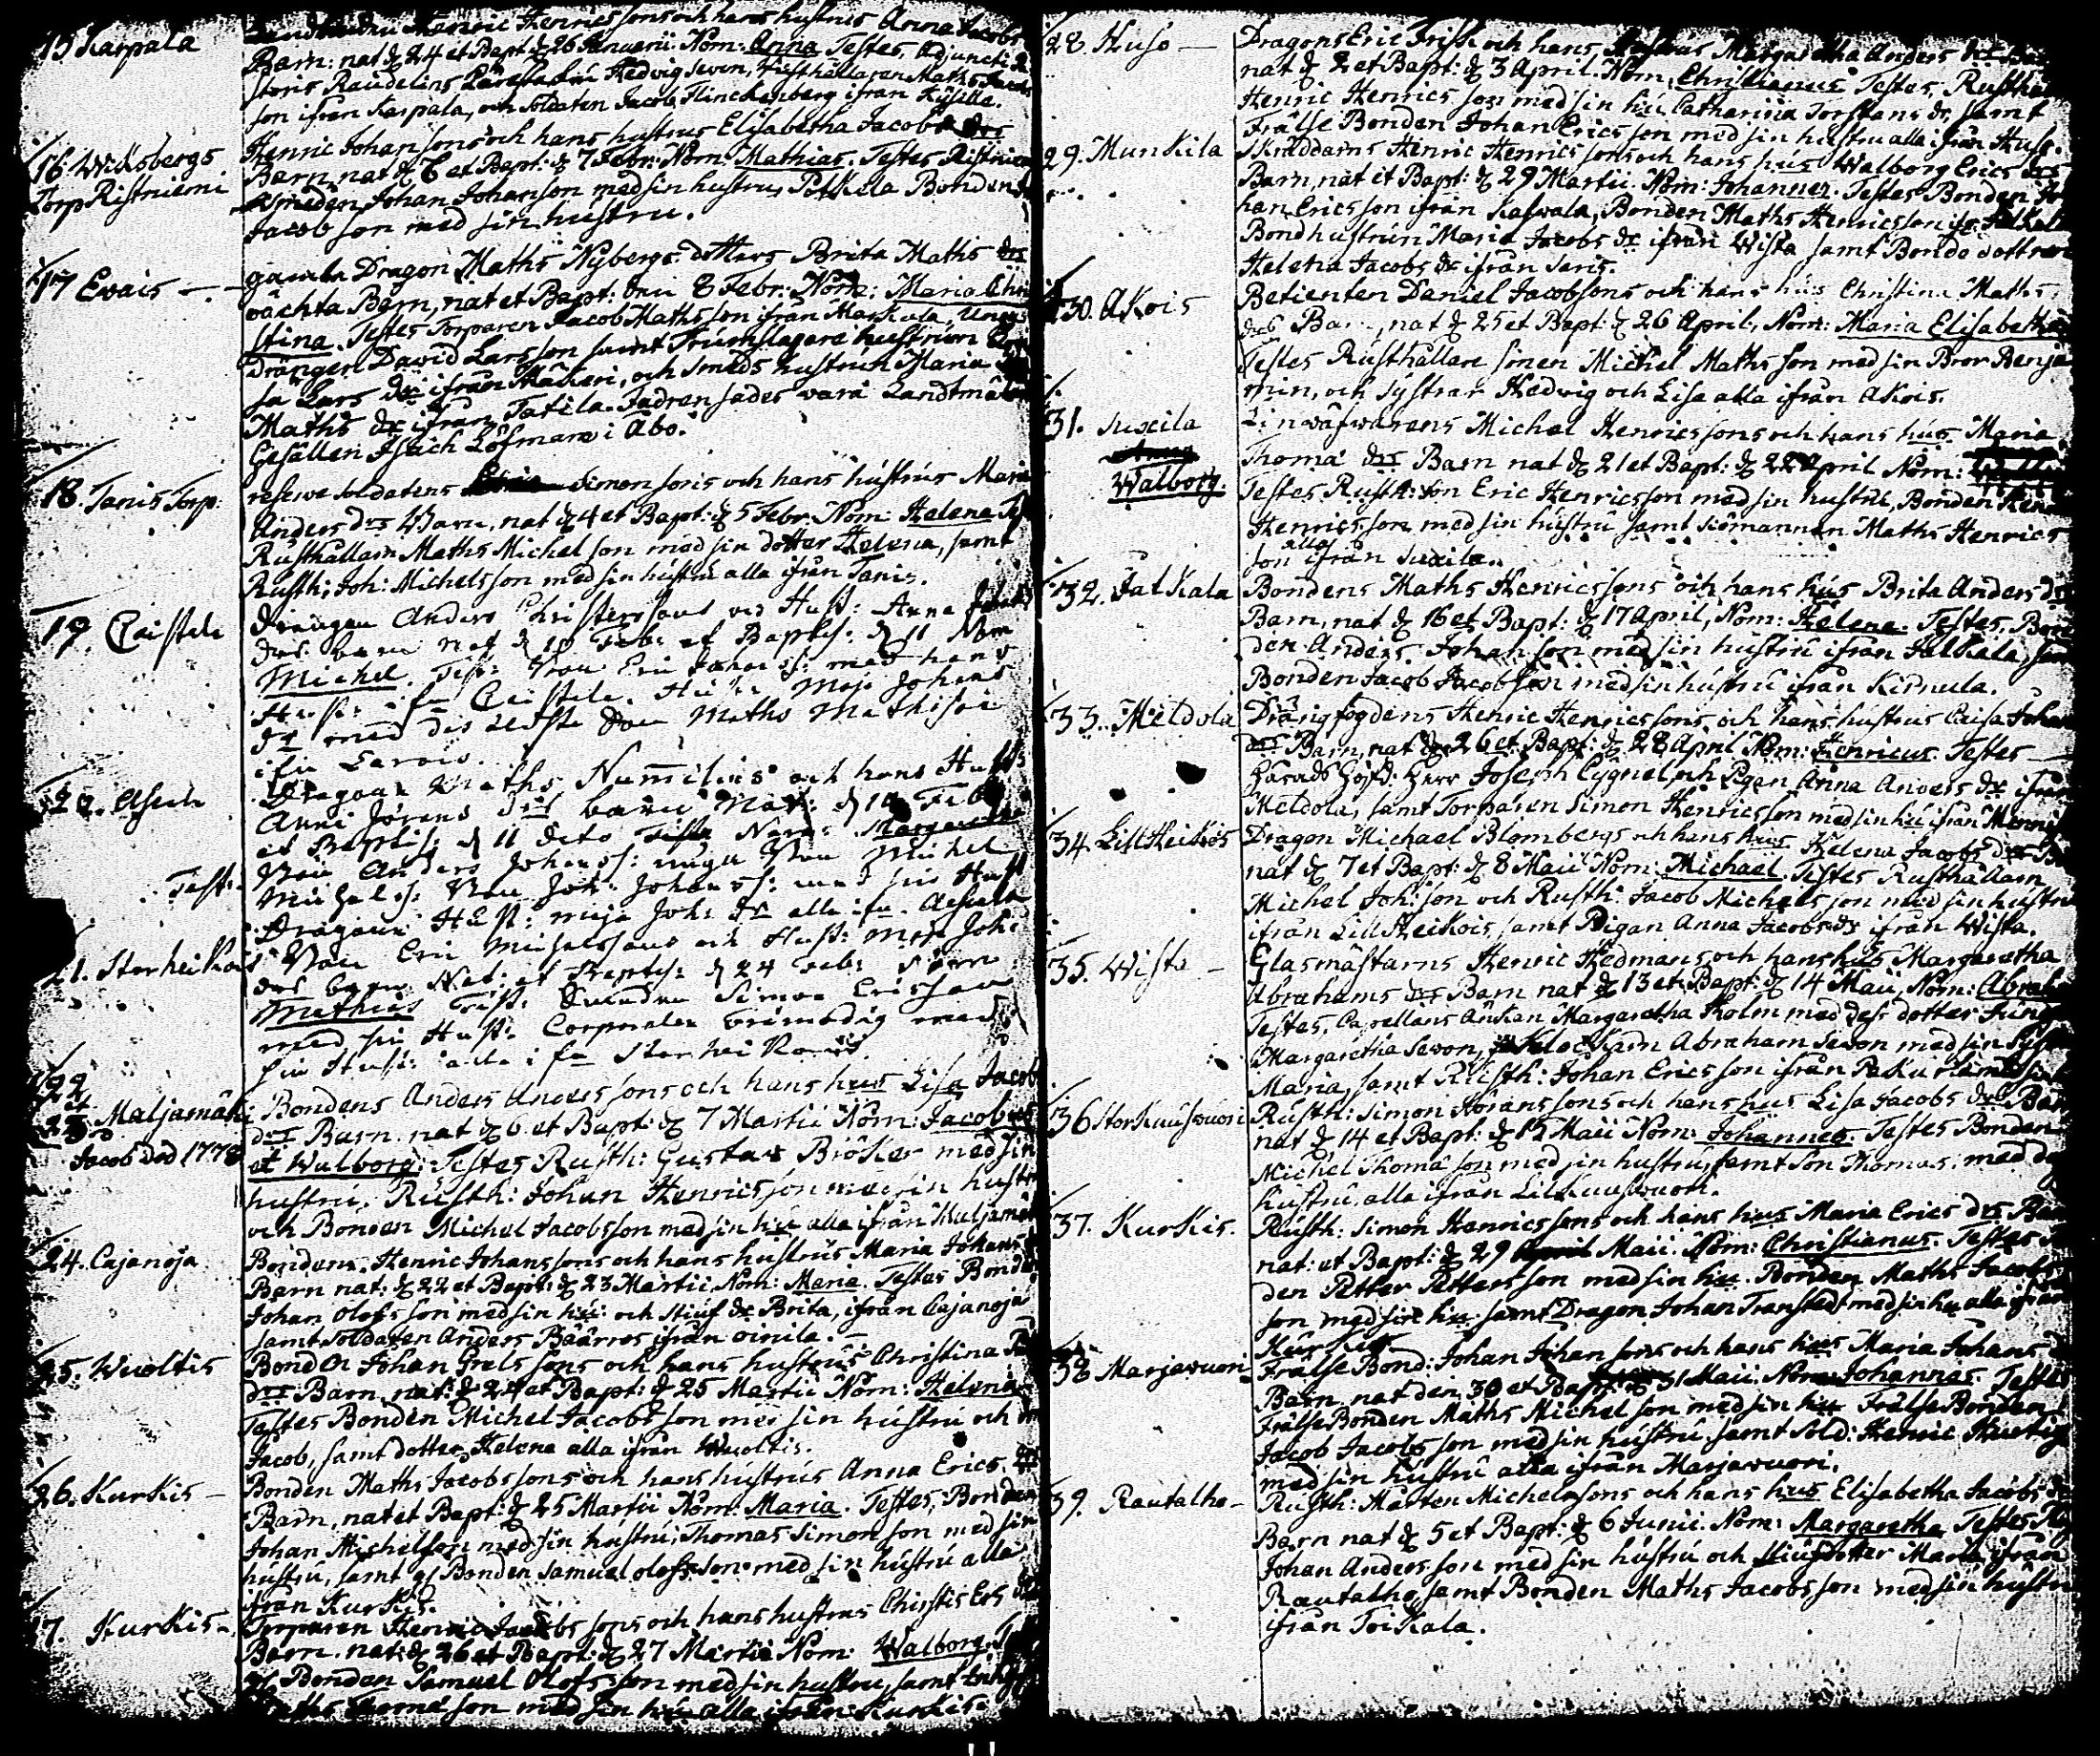 15 Karpala
Henric Henricssons och hans hustrus Anna Jacobs
Barn: nat d. 24 et Bapt: d. 26 Januarii. Nom: Anna. Testes, Adjuncti
storis Raudelins Hedvig Sevon, Rusthållaren Maths Jacob
son ifrån Karpala, och Soldaten Jacob Flinckenberg ifrån
16 Wiksbergs
Torp Ristniemi
Henric Johansons och hans hustrus Elisabetha Jacobs drs
Barn, nat d. 6 et Bapt: d. 7 Febr: Nom: Mathias. Testes Ristniemi
Smeden Johan Johanson med sin hustru, Potkela Bonden
Jacobson med sin hustru.
17 Evais
gamla Dragon Maths Nybergs dotters Brita Maths drs
oächta Barn, nat et Bapt: den 8 Febr: Nom: Maria Chri
stina. Testes Torparen Jacob Mathsson ifrån Markula, Unga
Drängen David Larsson samt Trumslagare hustrun
sa Lars dr ifrån, och Smeds hustrun Maria
Maths dr ifrån Tatila. Fadren sades vara Landtmäteri
Gesällen Isach Löfman i Åbo.
18. Tanis Torp
reserve soldatens Simonsons och hans hustrus Maria
Anders drs Barn, nat d. 4 et Bapt: d. 5 Febr. Nom: Helena Tes
Rusthållarn Maths Michelson med sin dotter Helena, samt
Rusth: Joh: Michelsson med sin hustru alla ifrån Tanis.
19. Cristelä
Drängen Anders Christerssons och Hust: Anna
drs barn nat d. 10 Feb: et Baptis: d. 11 Nom
Michel. Test: Bon Eric Johans s: med hans
Hust: ifr Cristelä Hust: Maja Johans
dr med dito Maths Mathison
ifrn Larois.
20. Asela
Dragoun Maths Nummelins och hans Hust:
Anni Jörans drs barn Nat: d. 10 Feb:
et Baptis: d. 11 dito Nom: Margaretha
Test: Bon Anders Johanss: unga Bon Michel
Michels s: Bon Joh: Johanss: med sin Hust
Dragoun Hust: Maja Joh: dr alla ifrn. Aesela
21. Storheikois
Bon Eric Michelssons och Hust: Joh:
drs barn Nat: et Baptis: d. 24 Feb: Nom
Mathias Test: Simon Ericson
med sin Hust: Corporalen Frimodig med
sin Hust: alla ifrn Storheikois.
22
et
23 Maljamäki
Jacob död 1778
Bondens Anders Anderssons och hans hus Lisa Jacobs
drs Barn. nat d. 6. et Bapt: d. 7 Martii Nom: Jacobus
et Walborg. Testes Rusth: Gustav Bröker med sin
hustru, Rusth: Johan Henricsson med sin hustru
och Bonden Michel Jacobsson med sin hu alla ifrån Maljamäki
24. Cajanoja
Bondens Henric Johanssons och hans hustrus Maria Johans
Barn nat: d. 22 et Bapt: d. 23 Martii Nom: Maria. Testes Bonden
Johan Olofsson med sin hu: och Stiuf dr Brita, ifrån Cajanoja
samt Soldaten Anders Bäärnes ifrån Oinila.
25. Wuoltis
Bonden Johan Grelssons och hans hustrus Christina
drs Barn nat: d. 24 et Bapt: d. 25 Martii Nom: Helena
Testes Bonden Michel Jacobsson med sin hustru och
Jacob, samt dotter Helena alla ifrån Wuoltis.
26. Kurkis
Bonden Maths Jacobssons och hans hustrus Anna Erics drs
Barn, nat et Bapt: d. 25 Martii Nom: Maria. Testes, Bonden
Johan Michelson med sin hustru, Thomas Simonson med sin
hustru, samt Bonden Samuel Olofsson med sin hustru alla
ifrån Kurkis.
27. Kurkis
Torparen Henric Jacobssons och hans hustrus Christis Ers
Barn. nat: d. 26 et Bapt: d. 27 Martii Nom: Walborg. Tes
Bonden Samuel Olofsson med sin hustru, samt
Thomasson med sin hu alla ifrån Kurkis.
28. Huso
Dragons Eric Frisk och hans hustrus Margaretha Anders drs
nat d. 2 et Bapt: d. 3 April. Nom: Christianus Testes, Rusthål
Henric Henricsson med sin hu Catharina Torstans dr, samt
Frälse Bonden Johan Ericsson med sin hustru alla ifrån Huso.
29. Munkila
Skräddarns Henric Henricssons och hans hus Walborg Erics drs
Barn, nat et Bapt: d. 29 Martii. Nom: Johannes. Testes Bonden Jo
han Ericsson ifrån Kaswala, Bonden Maths Henricsson ifr Jalkala
Bondhustrun Maria Jacobs dr ifrån Wista samt Bondedottren
Helena Jacobs dr ifrån Saris.
30. Akois
Betienten Daniel Jacobsons och hans hus Christina Maths
drs Barn, nat d. 25 et Bapt: d. 26 April, Nom: Maria Elisabetha
Testes Rusthållare sonen Michel Mathsson med sin Bror Benja
min, och systrar Hedvig och Lisa alla ifrån Akois.
31. Suxila
Walborg.
Linwäfwarens Michel Henricssons och hans hus Maria
Thomæ drs Barn nat d. 21 et Bapt: d. 22 April Nom:
Testes Rusth: son Eric Henricsson med sin hustru, Bonden Henr
Henricsson med sin hustru samt Siömannen Maths Henrics
son alla ifrån Suxila.
32. Jalkala
Bondens Maths Henricssons och hans hus Brita Anders drs
Barn, nat d. 16 et Bapt: d. 17 April, Nom: Helena. Testes, Bon
den Anders Johanson med sin hustru ifrån Jalkala, samt
Bonden Jacob Jacobson med sin hustru ifrån Kirnula.
33. Meldola
Drängfogdens Henric Henricssons, och hans hustrus Caisa Johans
drs Barn, nat d. 26 et Bapt: d. 28 April Nom: Henricus. Testes
Härads Höfd: Herr Joseph Cygnel och Pigan Anna Anders dr ifrån
Meldola, samt Torparen Simon Henricsson med sin hu ifrån
34. Lill Heikois
Dragon Michael Blombergs och hans hus Helena Jacobs drs
nat d. 7 et Bapt: d. 8 Maii Nom: Michael. Testes Rusthållarn
Michel Joh:son och Rusth: Jacob Michelsson med sin hustru
ifrån Lill Heikois, samt Pigan Anna Jacobs dr ifrån Wista.
35. Wista
Glasmästarns Henric Hedmans och hans hus Margaretha
Abrahams drs Barn nat d. 13 et Bapt: d. 14 Maii, Nom: Abrah
Testes, Capellans Ankan Margaretha Tholm med des dotter Jung
Margaretha Sevon, Klockarn Abraham Sevon med sin Syster
Maria, samt Rusth: Johan Ericsson ifrån
36 Storkuusvuori
Rusth: Simon Jöranssons och hans hus Lisa Jacobs drs Barn
nat d. 14 et Bapt: d. 15 Maii Nom: Johannes. Testes Bonden
Michel Thomæson med sin hustru, samt Son Thomas, med des
hustru alla ifrån Lillkuusvuori.
37. Kurkis.
Rusth: Simon Henricssons och hans hus Maria Erics drs Barn
nat: et Bapt: d. 29 Maii. Nom: Christianus. Testes
den Petter Pettersson med sin hu. Bonden Maths Jacobs
son med sin hu samt Dragon Johan Transtedt med sin hu alla ifrån
Kurkis.
38 Marjavuori
Frälse Bond: Johan Johansons och hans hus Maria Johans
Barn. nat den 30 et Bapt: d. 31 Maii. Nom: Johannes. Testes
Frälse Bonden Maths Michelson med sin hu Frälse Bonden
Jacob Jacobsson med sin hustru samt Sold: Henric Hurtig
med sin hustru alla ifrån Marjavuori.
39. Rautalho
Rusth: Mårten Michelssons och hans hus Elisabetha Jacobs
Barn nat d. 5 et Bapt: d. 6 Junii. Nom: Margaretha Testes
Johan Andersson med sin hustru och Stiufdotter Maria ifrån
Rautalho, samt Bonden Maths Jacobsson med sin hustru
ifrån Toikala.